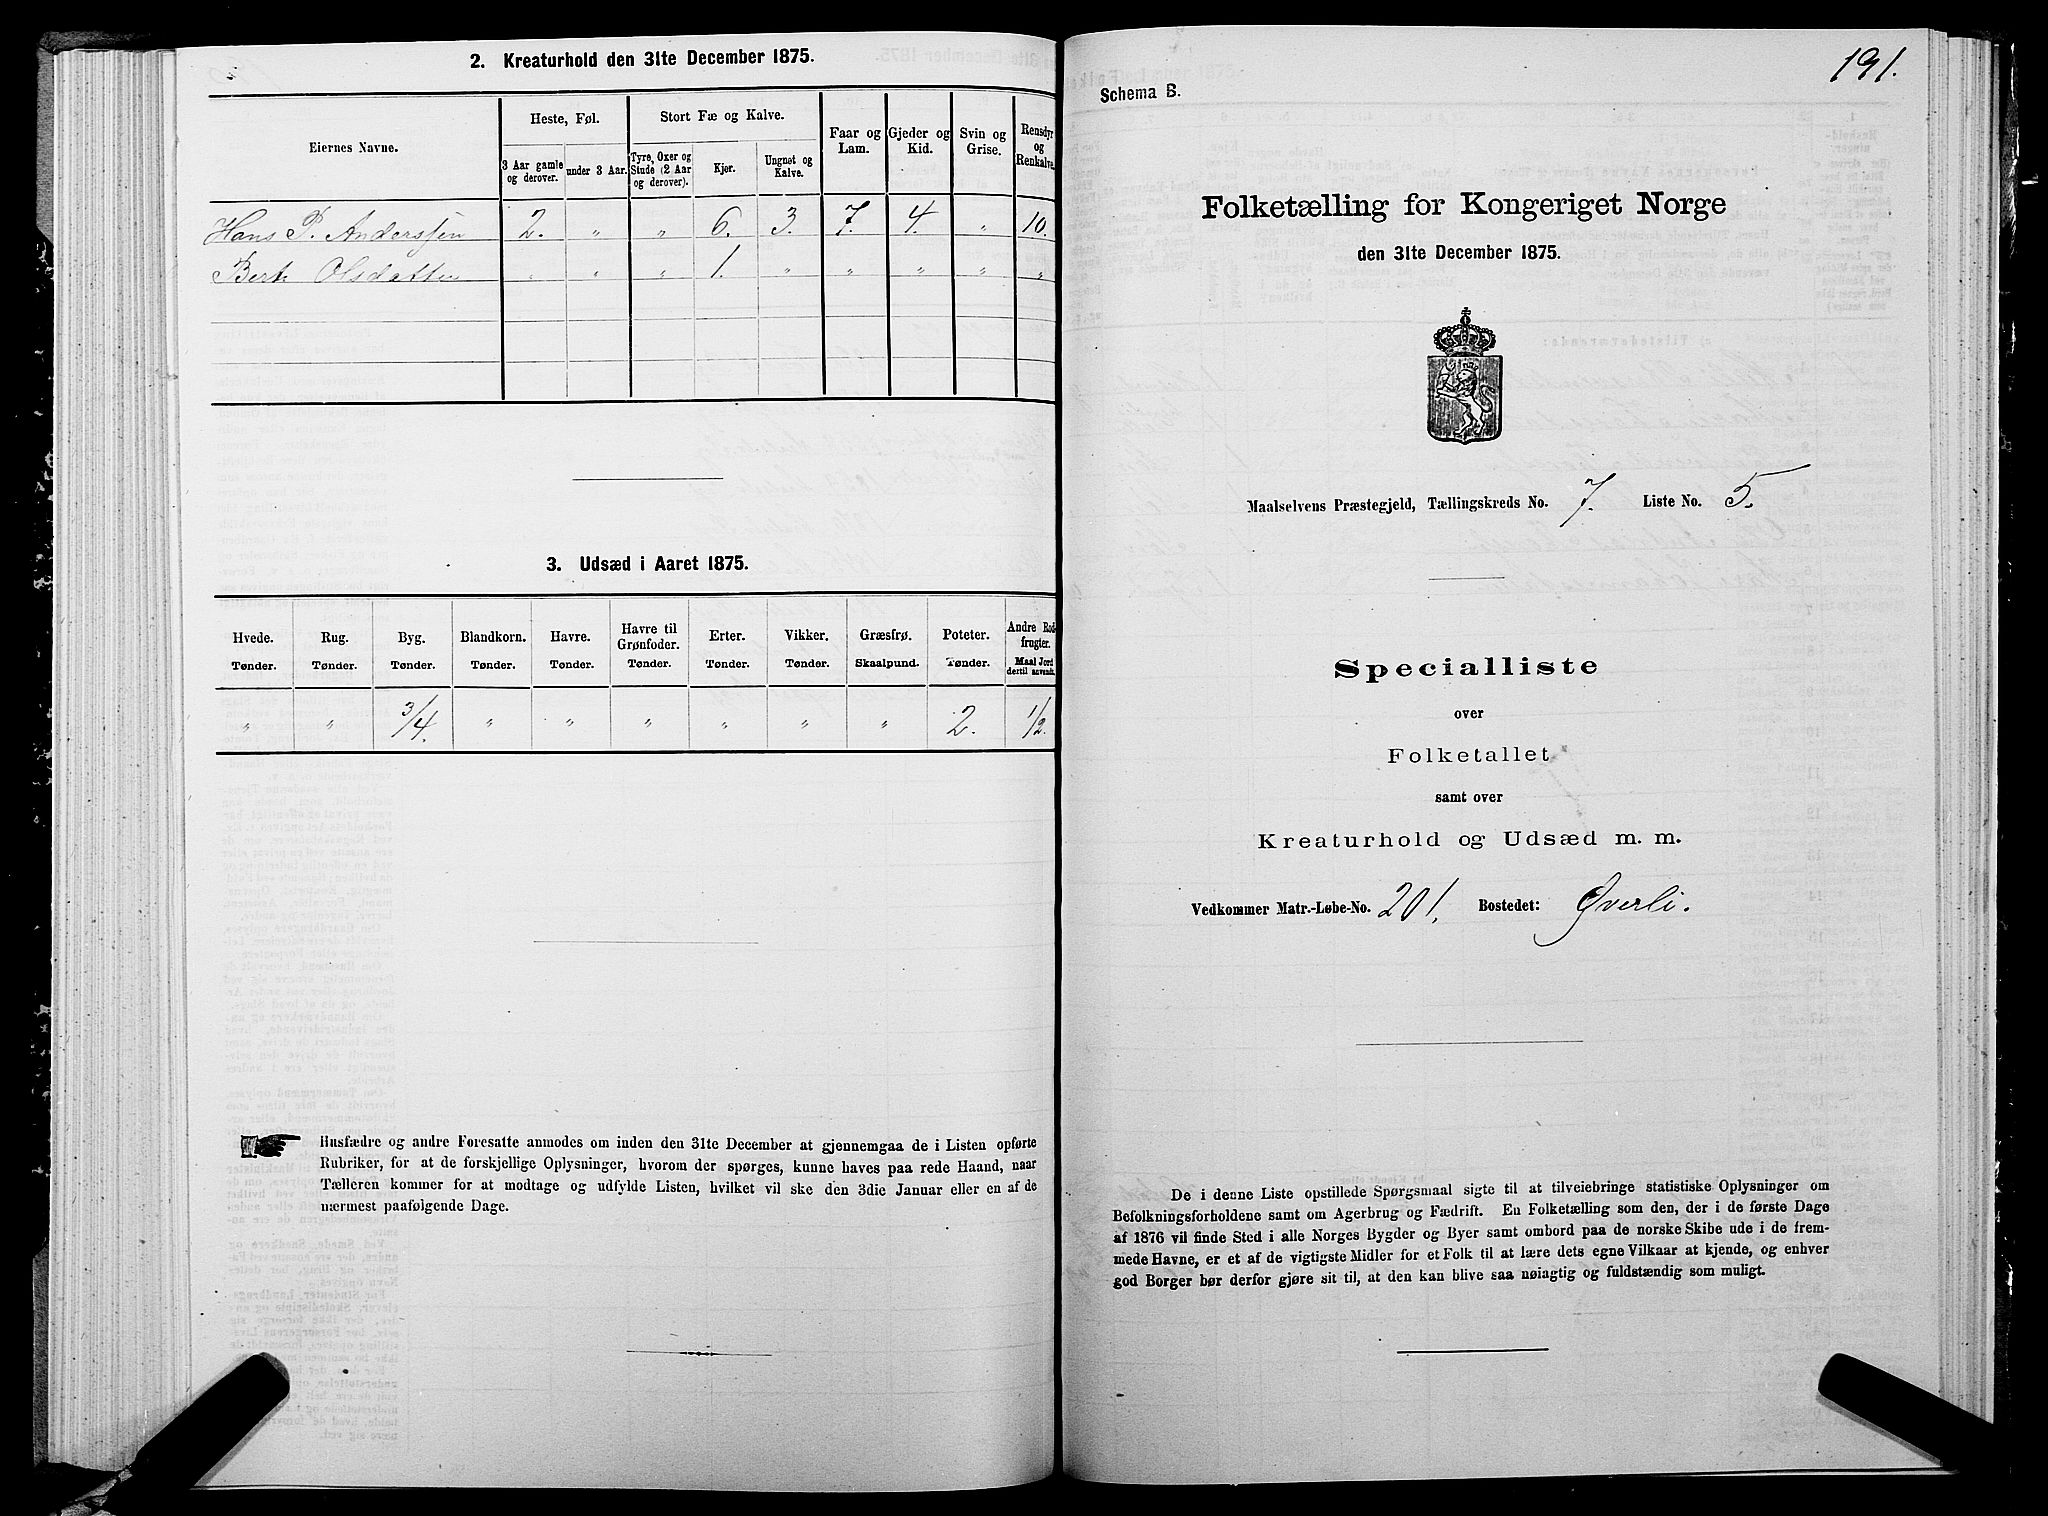 2. Kreaturhold den 31te December 1875.
Eiernes Navne.
Heste, Føl.
Stort Fæ og Kalve.
Faar og Lam.
Gjeder og Kid.
Svin og Grise.
Rensdyr og Renkalve.
3 Aar gamle og derover.
under 3 Aar.
Tyre, Oxer og Stude (2 Aar og derover).
Kjør.
Ungnet og Kalve.
Hans P. Anderssen 2. " " 6. 3. 7. 4. " 10.
Berit Olsdatter " " " 1. " " " " "
3. Udsæd i Aaret 1875.
Hvede. Rug. Byg. Blandkorn. Havre. Havre til Grønfoder. Erter. Vikker. Græsfrø. Poteter. Andre Rodfrugter.
Tønder. Tønder. Tønder. Tønder. Tønder. Tønder. Tønder. Tønder. Skaalpund. Tønder. Maal Jord dertil anvendt.
" " 3/4. " " " " " " 2. 1/2.
Husfædre og andre Foresatte anmodes om inden den 31te December at gjennemgaa de i Listen opførte
Rubriker, for at de forskjellige Oplysninger, hvorom der spørges, kunne haves paa rede Haand, naar
Tælleren kommer for at modtage og udfylde Listen, hvilket vil ske den 3die Januar eller en af de
nærmest paafølgende Dage.
191.
Schema B.
Folketælling for Kongeriget Norge
den 31te December 1875.
Maalselvens Præstegjeld, Tællingskreds No. 7. Liste No. 5.
Specialliste
over
Folketallet
samt over
Kreaturhold og Udsæd m. m.
Vedkommer Matr.-Løbe-No. 201. Bostedet: Øverli.
De i denne Liste opstillede Spørgsmaal sigte til at tilveiebringe statistiske Oplysninger om
Befolkningsforholdene samt om Agerbrug og Fædrift. En Folketælling som den, der i de første Dage
af 1876 vil finde Sted i alle Norges Bygder og Byer samt ombord paa de norske Skibe ude i de frem-
mede Havne, er et af de vigtigste Midler for et Folk til at lære dets egne Vilkaar at kjende, og enhver
god Borger bør derfor gjøre sit til, at den kan blive saa nøiagtig og fuldstændig som muligt.